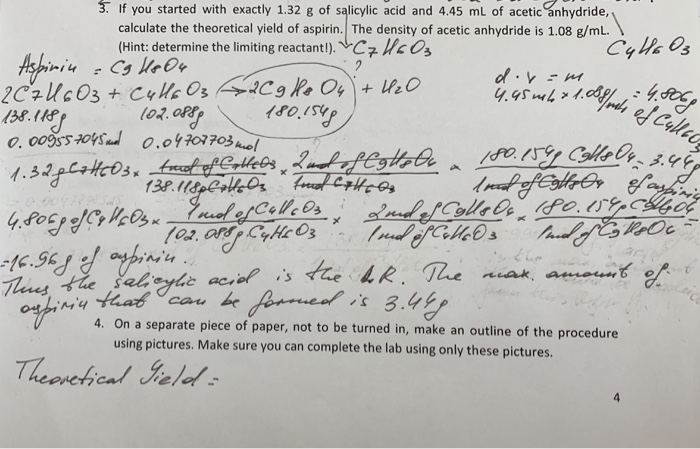 3. If you started with exactly 1.32 g of salicylic acid and 4.45 mL of acetic anhydride,
calculate the theoretical yield of aspirin. The density of acetic anhydride is 1.08 g/mL.
(Hint: determine the limiting reactant!). C7H6O3
C4H6O3
Aspirin = C9H8O4
?
d·v = m
2C7H6O3 + C4H6O3 → 2C9H8O4 + H2O
4.45mL × 1.08g/mL = 4.806g of C4H6O3
138.118g 102.088g 180.154g
0.009557045mol 0.04707703mol
1.32g C7H6O3 × 1mol of C7H6O3 / 138.118g C7H6O3 × 2mol of C9H8O4 / 1mol C7H6O3 × 180.154g C9H8O4 / 1mol of C9H8O4 = 3.44g of aspirin
4.806g of C4H6O3 × 1mol of C4H6O3 / 102.088g C4H6O3 × 2mol of C9H8O4 / 1mol of C4H6O3 × 180.154g C9H8O4 / 1mol of C9H8O4 =
=16.96g of aspirin.
Thus the salicylic acid is the LR. The max. amount of
aspirin that can be formed is 3.44g
4. On a separate piece of paper, not to be turned in, make an outline of the procedure
using pictures. Make sure you can complete the lab using only these pictures.
Theoretical Yield =
4